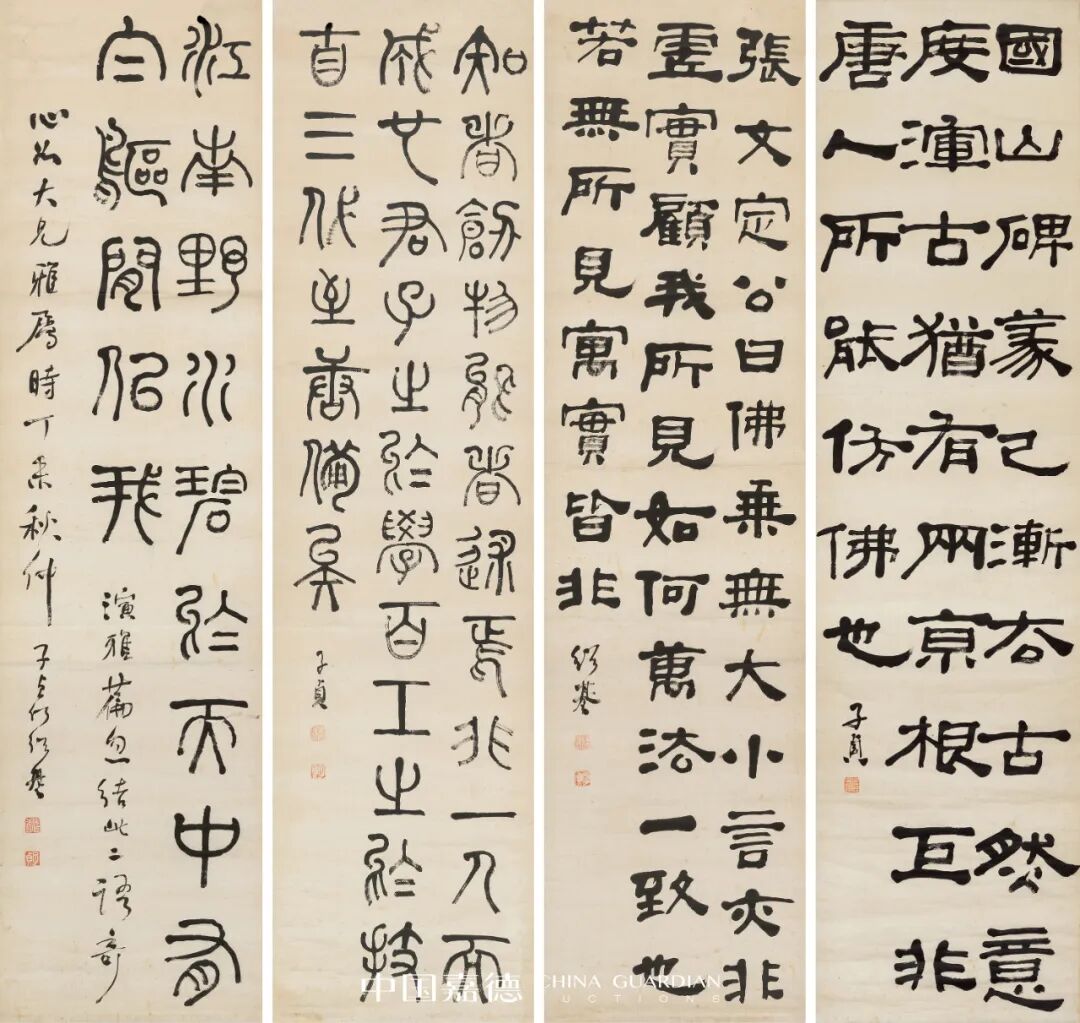 國山碑篆已漸右古然意
度渾古猶有兩京根巨非
唐人所能仿佛也
子貞
張文定公曰佛乘無大小言亦非
虛實顧我所見如何萬法一致也
若無所見寓實皆非
紹基
知者創物能者述焉非一人而
成也君子之於學百工之於技
自三代至唐備矣
子貞
江南野水碧於天中有
白鷗閒似我
演雅篇忽結此二語奇
大兄雅屬時丁未秋仲 子貞何紹基
中国嘉德 CHINA GUARDIAN
AUCTIONS